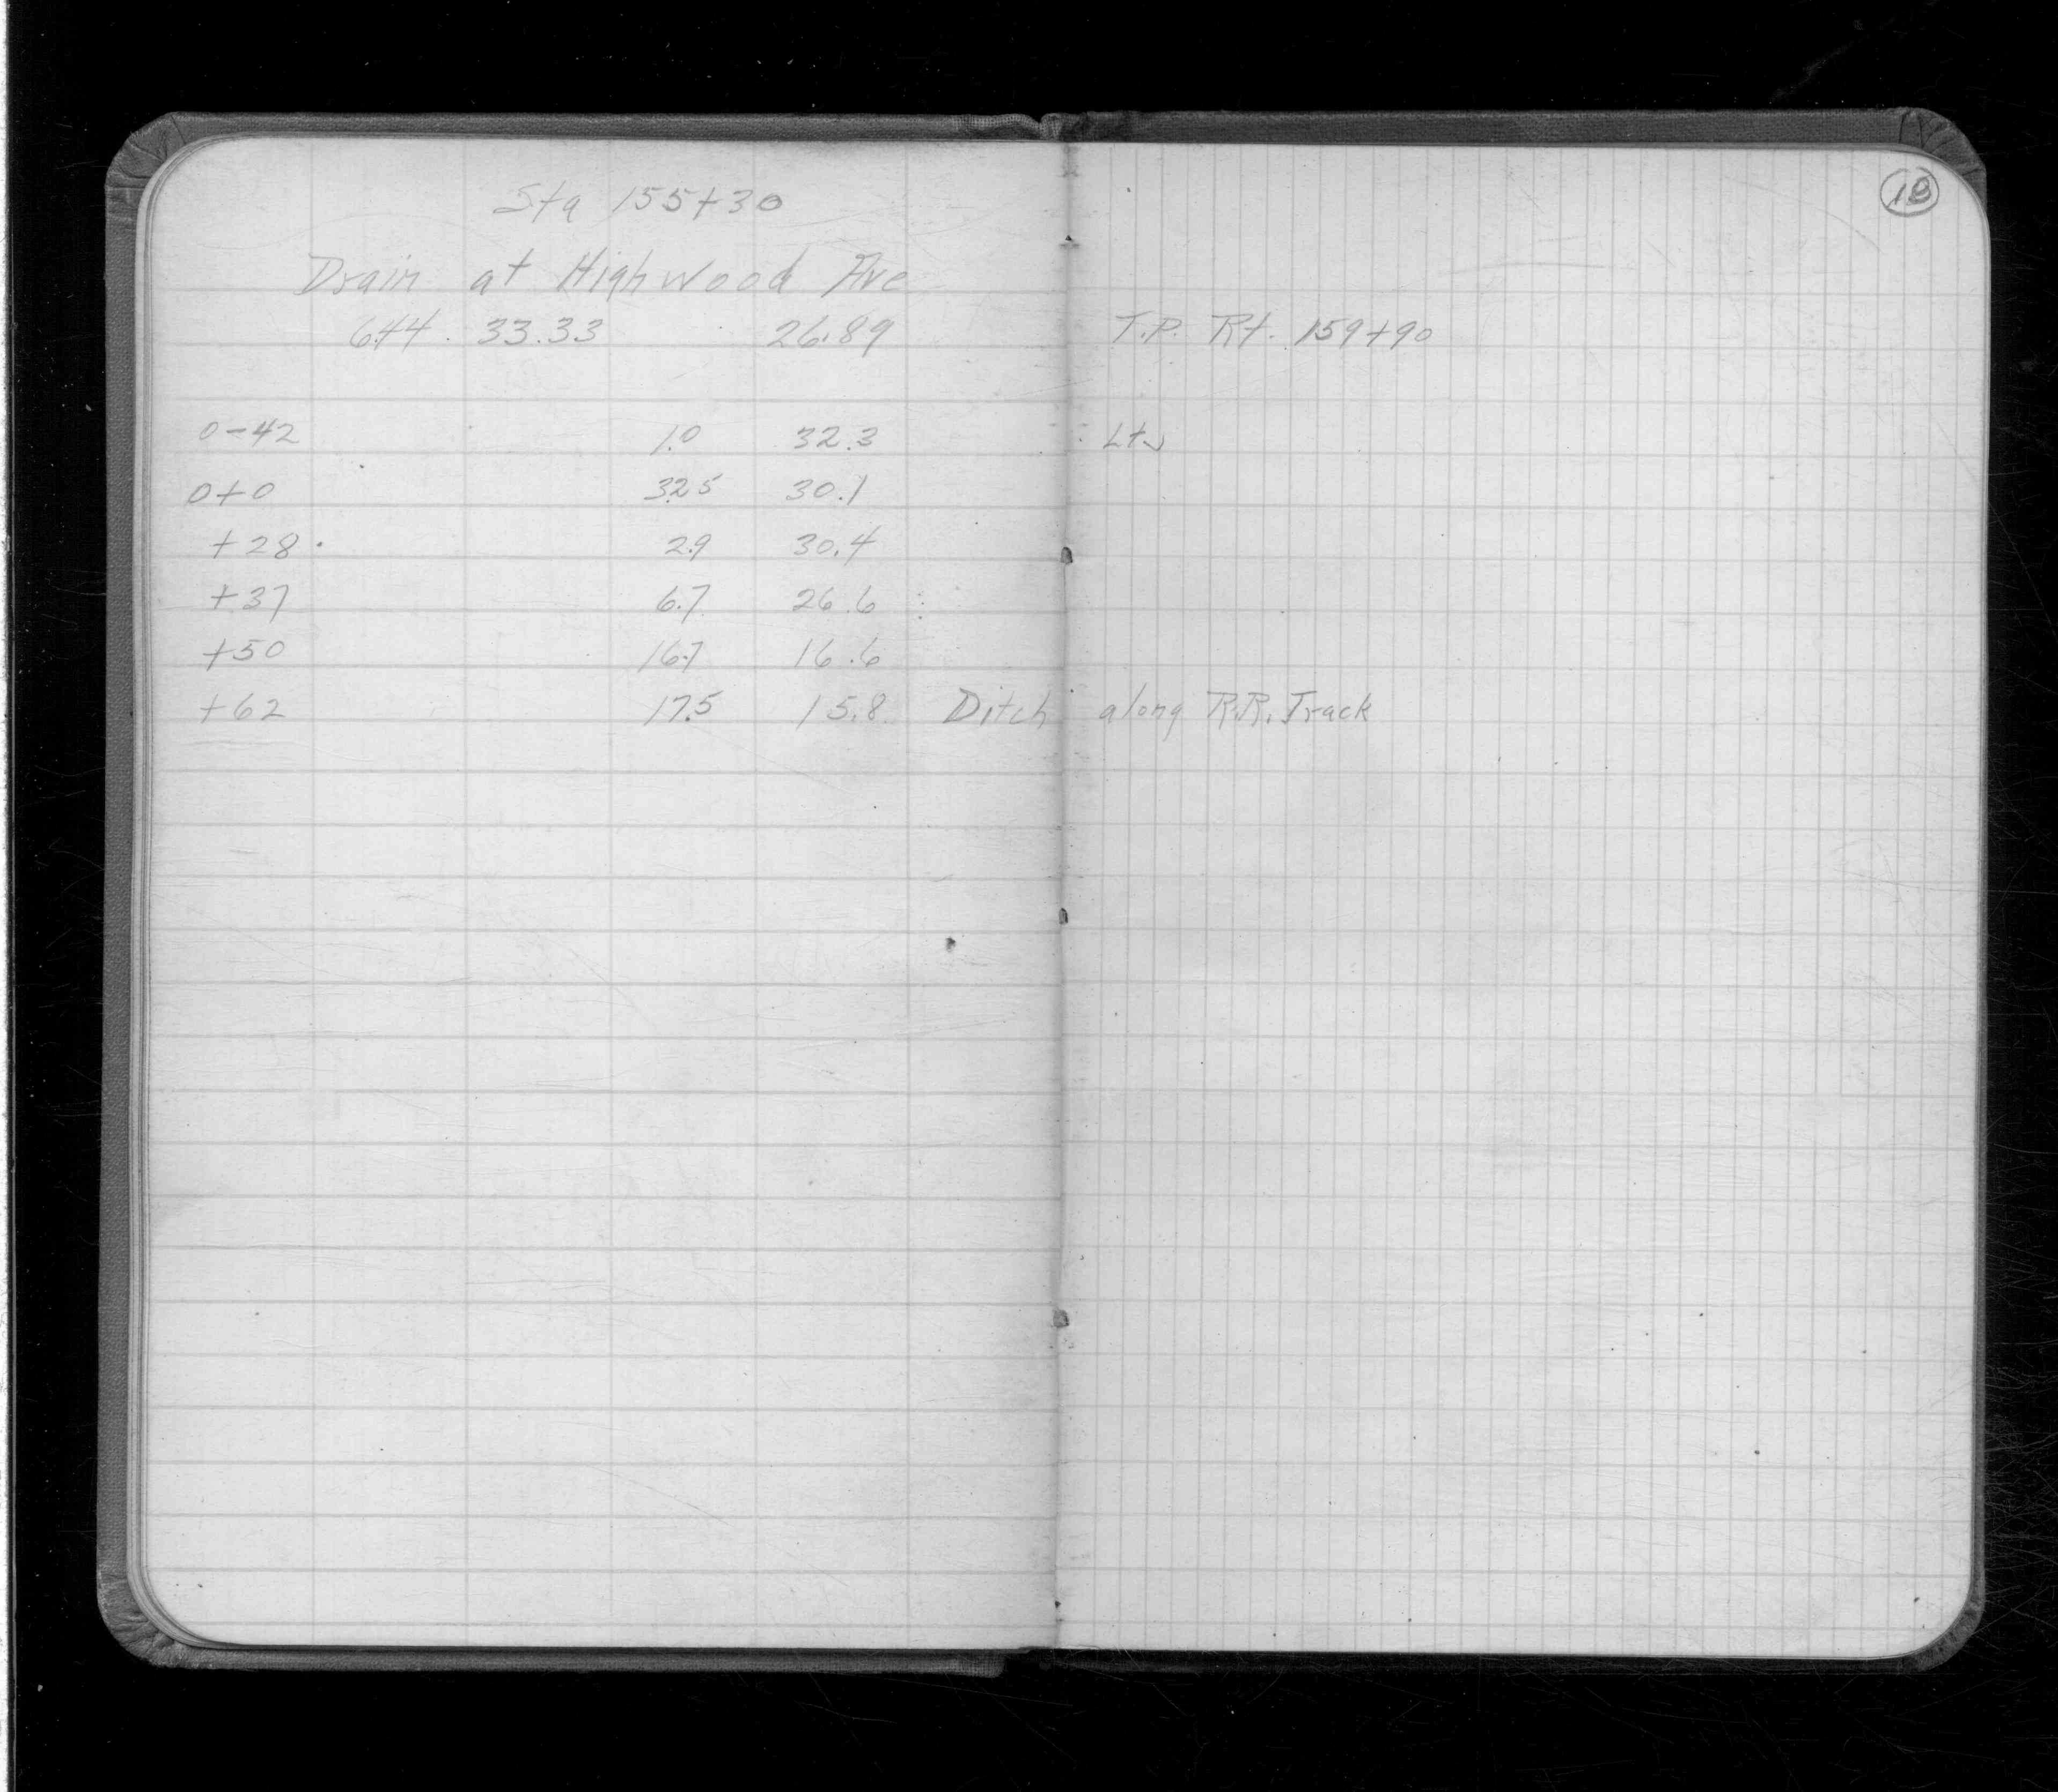 18
Sta 155+30
Drain at Highwood Ave
6.44 33.33 26.89 T.P. Rt. 159+90
0-42 1.0 32.3
0+0 3.25 30.1
+28 2.9 30.4
+37 6.7 26.6
+50 16.7 16.6
+62 17.5 15.8 Ditch along R.R. Track